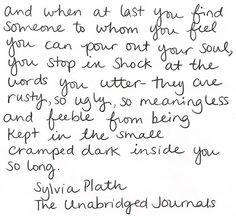 and when at last you find
someone to whom you feel
you can pour out your soul,
you stop in shock at the
words you utter- they are
rusty, so ugly, so meaningless
and feeble from being
kept in the small
cramped dark inside you
so long.
Sylvia Plath
The Unabridged Journals